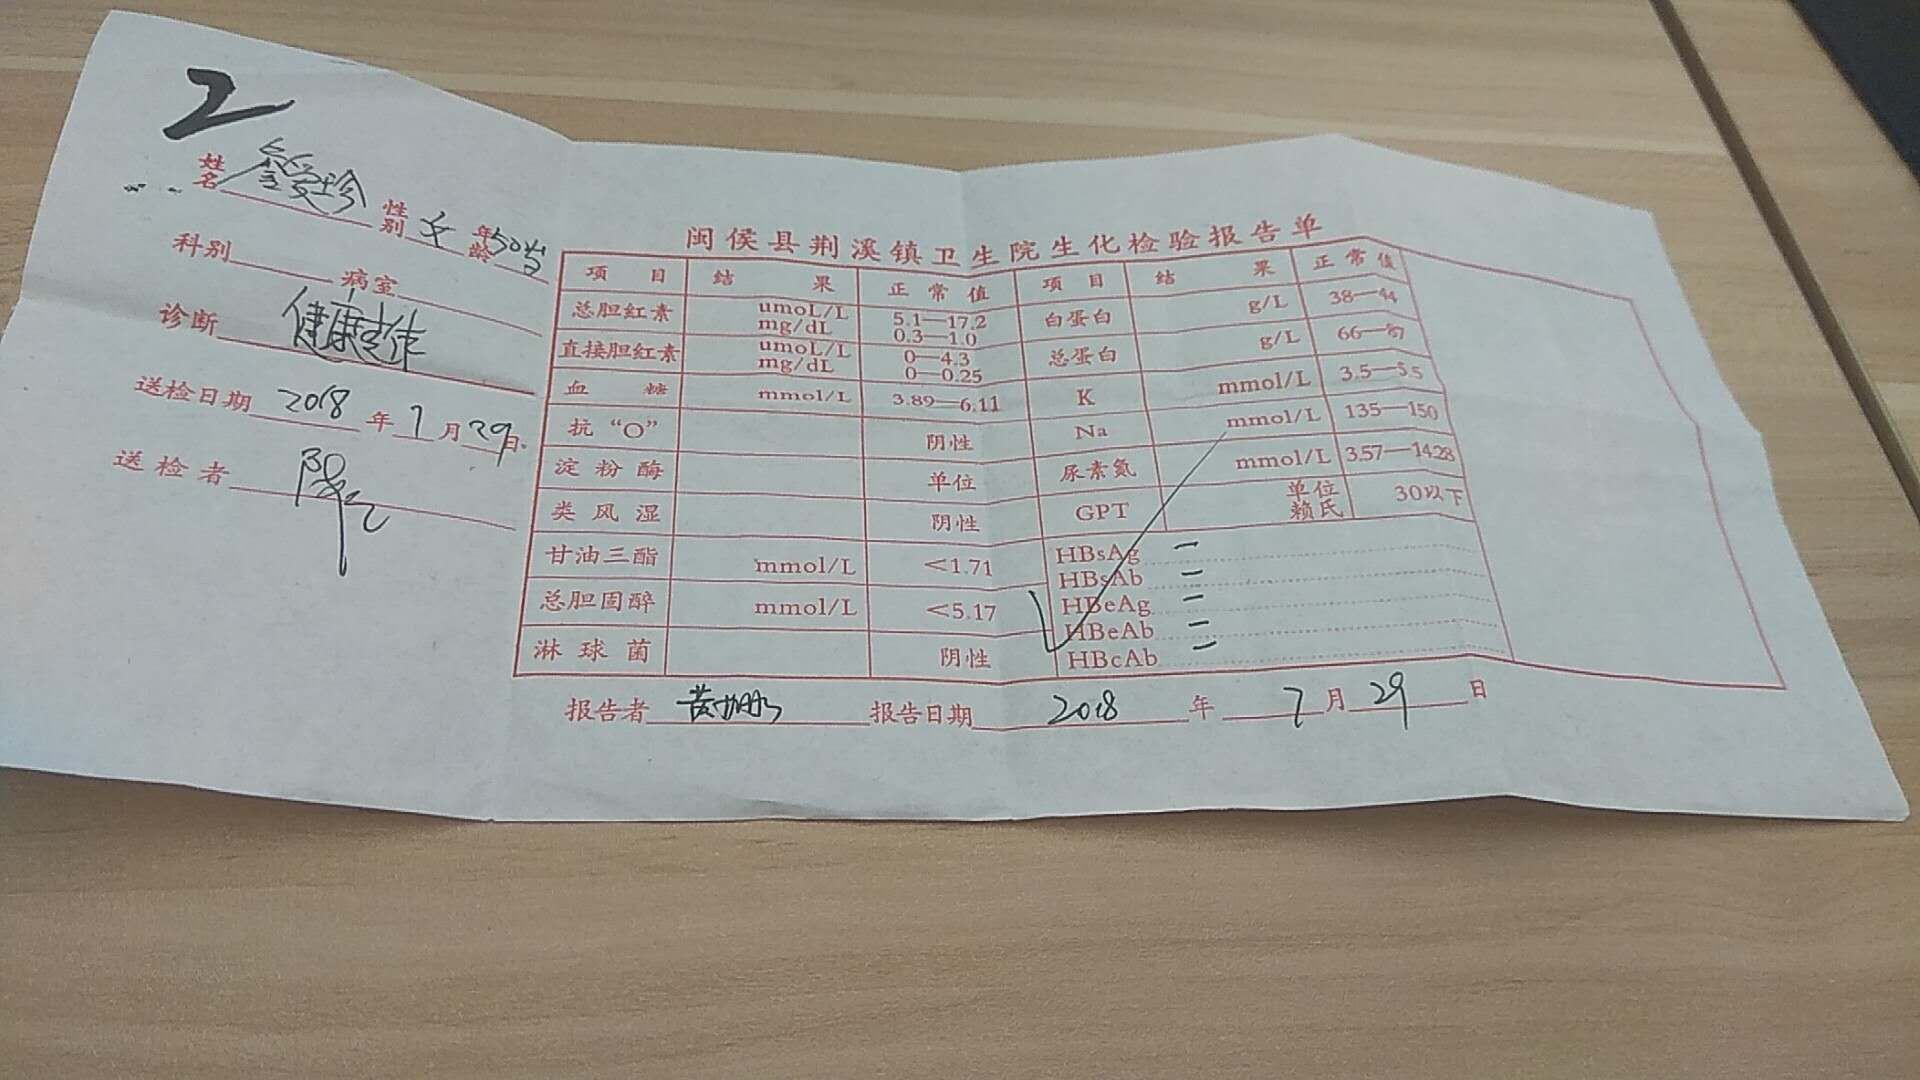 2
姓名 性别 女 年龄 50岁
科别 病室
诊断 健康体
送检日期 2018 年 7 月 29 日
送检者
闽侯县荆溪镇卫生院生化检验报告单
项目 结果 正常值 项目 结果 正常值
总胆红素 umoL/L mg/dL 5.1—17.2 0.3—1.0 白蛋白 g/L 38—44
直接胆红素 umoL/L mg/dL 0—4.3 0—0.25 总蛋白 g/L 66—
血糖 mmol/L 3.89—6.11 K mmol/L 3.5—5.5
抗“O” 阴性 Na mmol/L 135—150
淀粉酶 单位 尿素氮 mmol/L 3.57—14.28
类风湿 阴性 GPT 单位 赖氏 30以下
甘油三酯 mmol/L <1.71 HBsAg —
HBsAb —
总胆固醇 mmol/L <5.17 HBeAg —
HBeAb —
淋球菌 阴性 HBcAb —
报告者 报告日期 2018 年 7 月 29 日